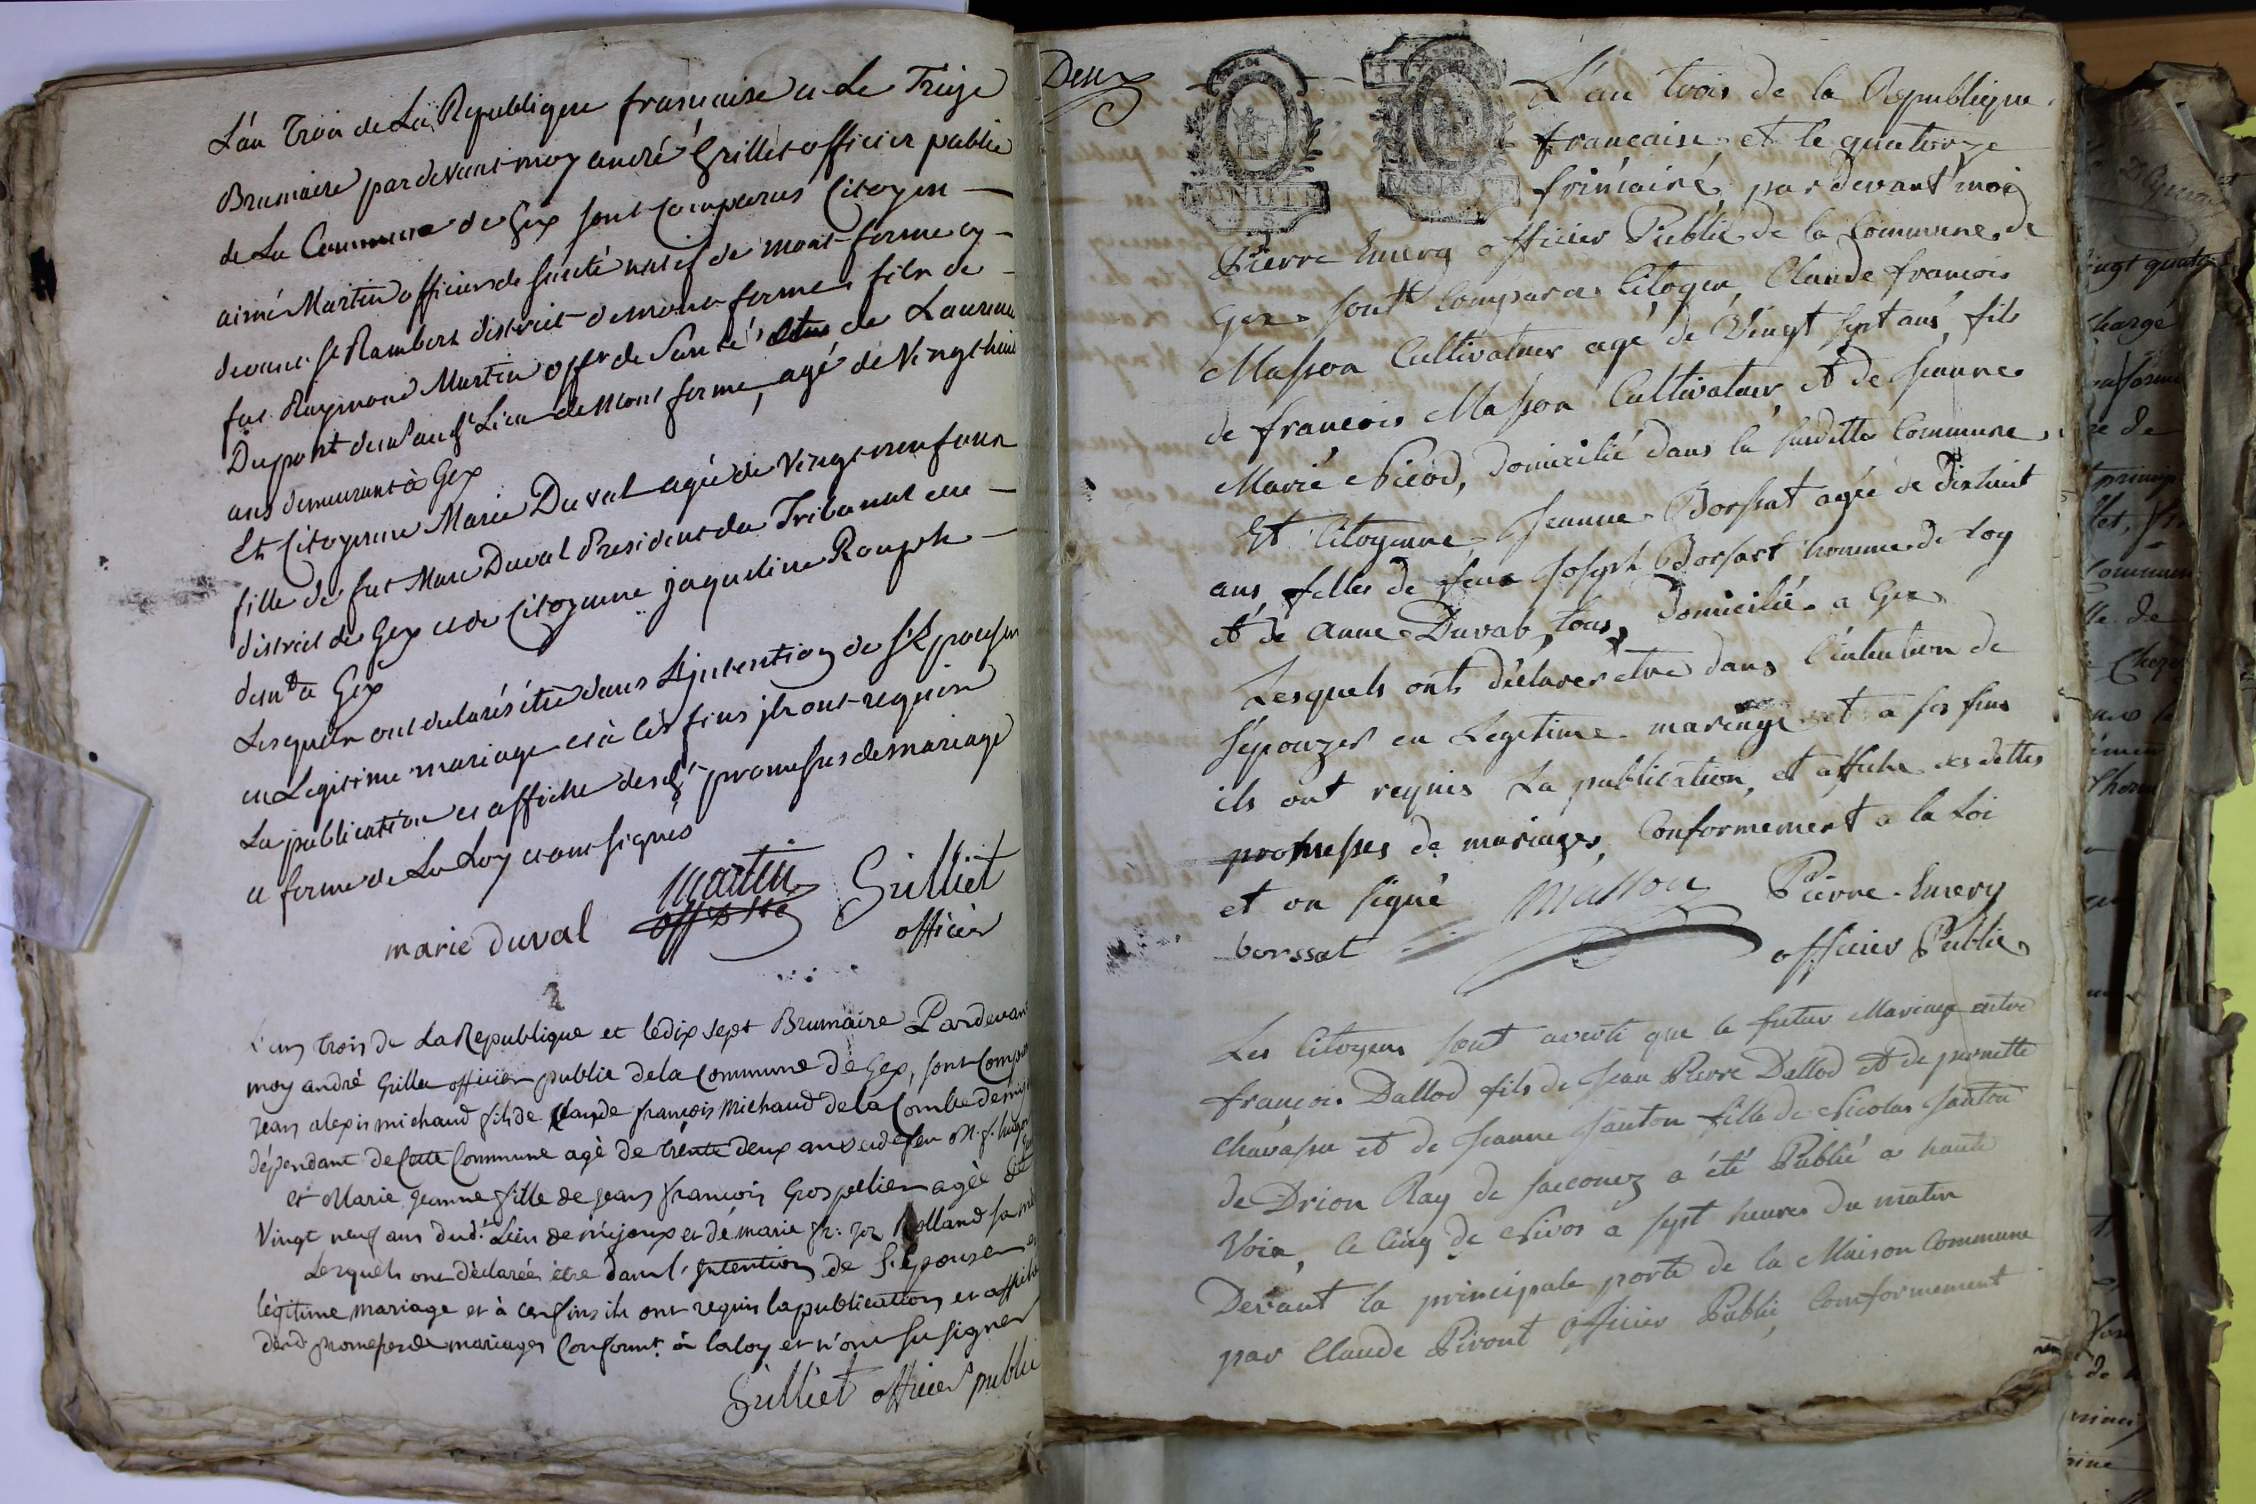 L'an Trois de La Republique francaise et Le Treize
Brumaire pardevant moy andré Grilliet officier public
de La Commune de Gex sont Comparus Citoyen
aimé Martin officier de santé natif de mont-ferme cy
devant St Rambert district de mont-ferme fils de
fut Raymond Martin offr de Santé et de Laurence
Dupont demt audt Lieu de Mont ferme, agé de Vingt huit
ans demeurant à Gex
Et Citoyenne Marie Duval agée de Vingt neuf ans
fille de fut Marc Duval President du Tribunal du
district de Gex et de Citoyenne jaqueline Rouph
demte a Gex
Lesquels ont declarés être dans L'jntention de s'Epouser
en Legitime mariage et à ces fins jls ont requis
La publication et affiche desdes promesses de mariage
a forme de La Loy et ont signés
marie duval martin offr de sté Grilliet
officier
L'an trois de La Republique et le dix sept Brumaire Pardevant
moy andré Grilliet officier public de la Commune de Gex, sont Comparus
Jean alexis michaud fils de Claude françois Michaud de la Combe de mijoux
dépendant de Cette Commune agè de trente deux ans et de feu
et Marie Jeanne fille de Jean françois Grospellier agèe de
Vingt neuf ans dudt Lieu de mijoux et de marie Rolland sa mère
Lesquels ont déclarés être dans l'jntention de S'épouser en
légitime mariage et à ces fins ils ont requis la publication et affiche
desd promesses de mariages Conformt à la loy et n'ont su signer
Grilliet officier public
Deux
L'an trois de la Republique
francaise et le quatorze
frimaire, par devant moi
Pierre Emery officier Public de la Commune de
Gex sont Comparu Citoyen Claude francois
Masson Cultivateur agé de Vingt sept ans fils
de francois Masson Cultivateur et de Jeanne
Marie Nicod, domicilié dans la susditte Commune
Et Citoyenne Jeanne Borssat agée de dixhuit
ans filles de feu Joseph Borssat homme de Loy
et de anne Duval, tous domicilié a Gex
Lesquels ont déclarer etre dans l'intention de
s'épouzer en Legitime mariage et a ses fins
ils ont requis La publication, et affiche des dittes
promesses de mariages, Conformement a la Loi
et on signé Masson Pierre Emery
borssat officier Public
Les Citoyens sont averti que le futur Mariage entre
françois Dallod fils de Jean Pierre Dallod et de pernette
Chavassu et de Jeanne Janton fille de Nicolas Janton
de Drion Ray de Sacconez a été Publié a haute
Voix, le Cinq de Nivos a sept heures du matin
Devant la principale porte de la Maison Commune
par Claude Piront officier Public, Conformement